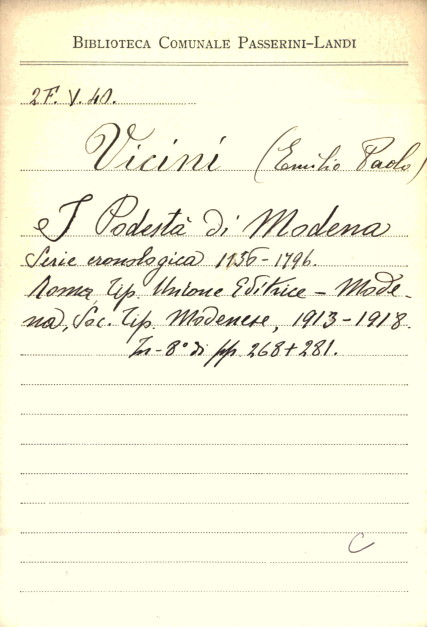 BIBLIOTECA COMUNALE PASSERINI-LANDI
2F. V. 40.
Vicini (Emilio Paolo)
I Podestà di Modena
Serie cronologica 1136-1796.
Roma, Tip. Unione Editrice - Mode-
na, Soc. Tip. Modenese, 1913-1918.
In-8° di pp. 268+281.
C